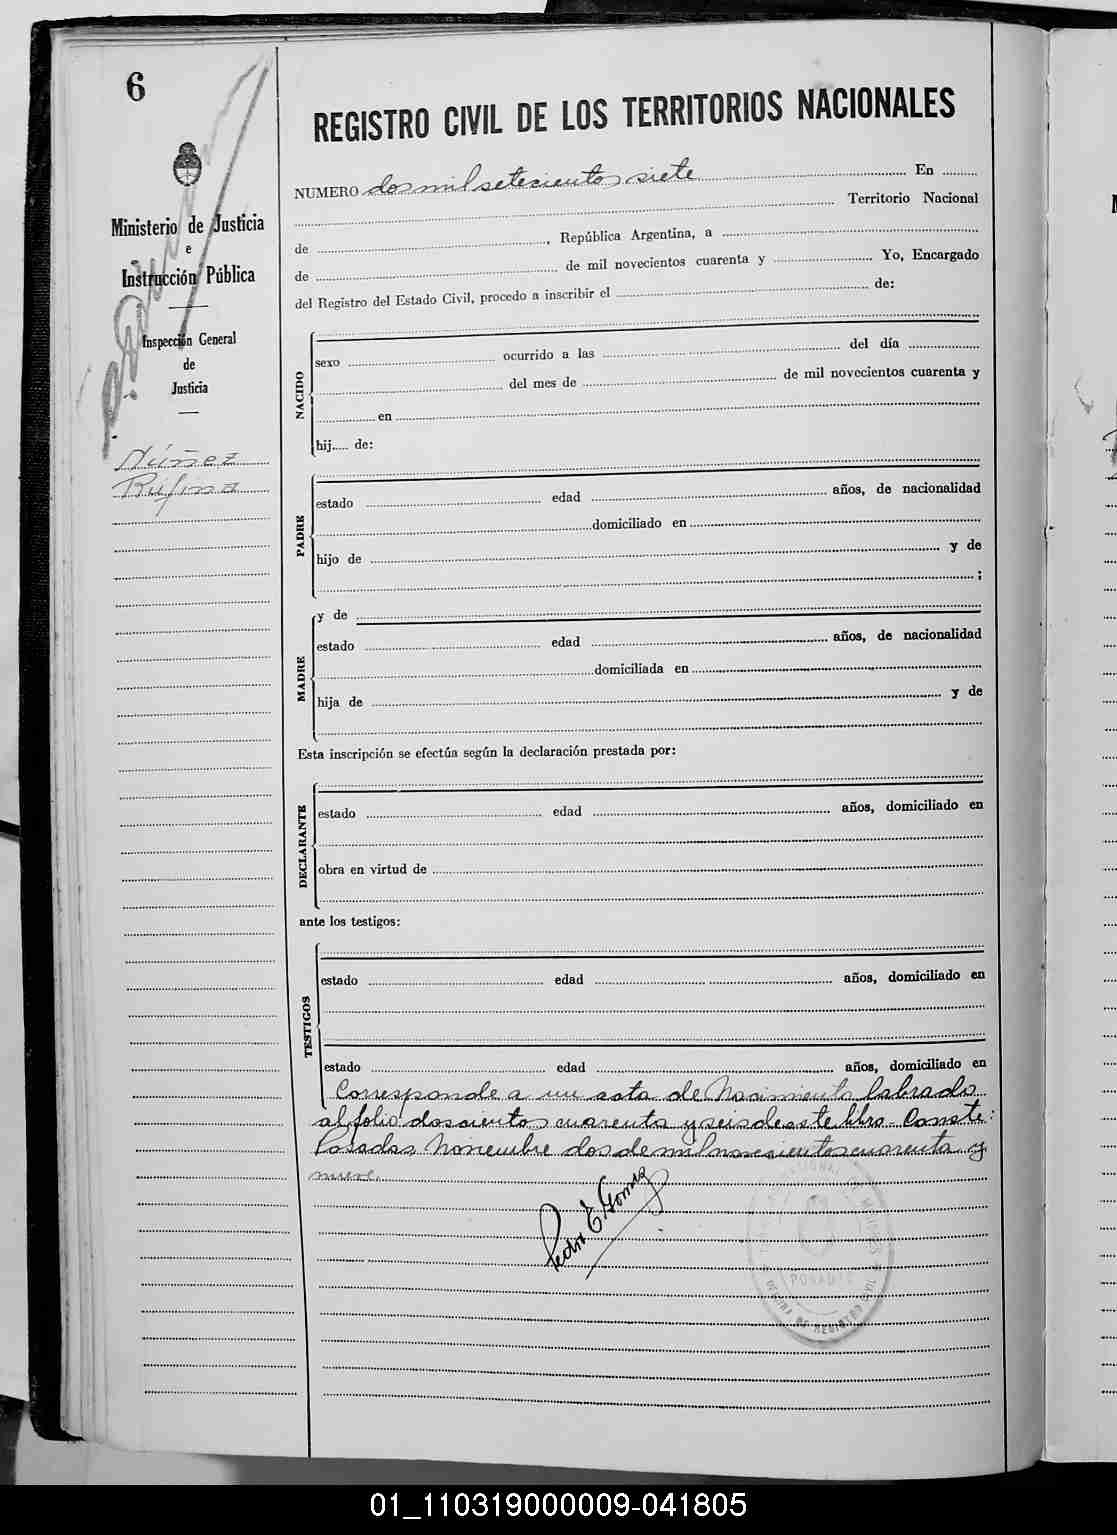 6
REGISTRO CIVIL DE LOS TERRITORIOS NACIONALES
Ministerio de Justicia
e
Instrucción Pública
Inspección General
de
Justicia
Núñez
Rufina
NUMERO dos mil setecientos siete En
Territorio Nacional
de , República Argentina, a
de de mil novecientos cuarenta y Yo, Encargado
del Registro del Estado Civil, procedo a inscribir el de:
NACIDO
sexo ocurrido a las del día
del mes de de mil novecientos cuarenta y
en
hij..... de:
PADRE
estado edad años, de nacionalidad
domiciliado en
hijo de y de
;
MADRE
y de
estado edad años, de nacionalidad
domiciliada en
hija de y de
Esta inscripción se efectúa según la declaración prestada por:
DECLARANTE
estado edad años, domiciliado en
obra en virtud de
ante los testigos:
TESTIGOS
estado edad años, domiciliado en
estado edad años, domiciliado en
Corresponde a un acta de Nacimiento labrada
al folio doscientos cuarenta y seis de este libro. Conste:
Posadas, Noviembre dos de mil novecientos cuarenta y
nueve.
Pedro E. Gomez
POSADAS
OFICINA DE REGISTRO CIVIL
01_110319000009-041805